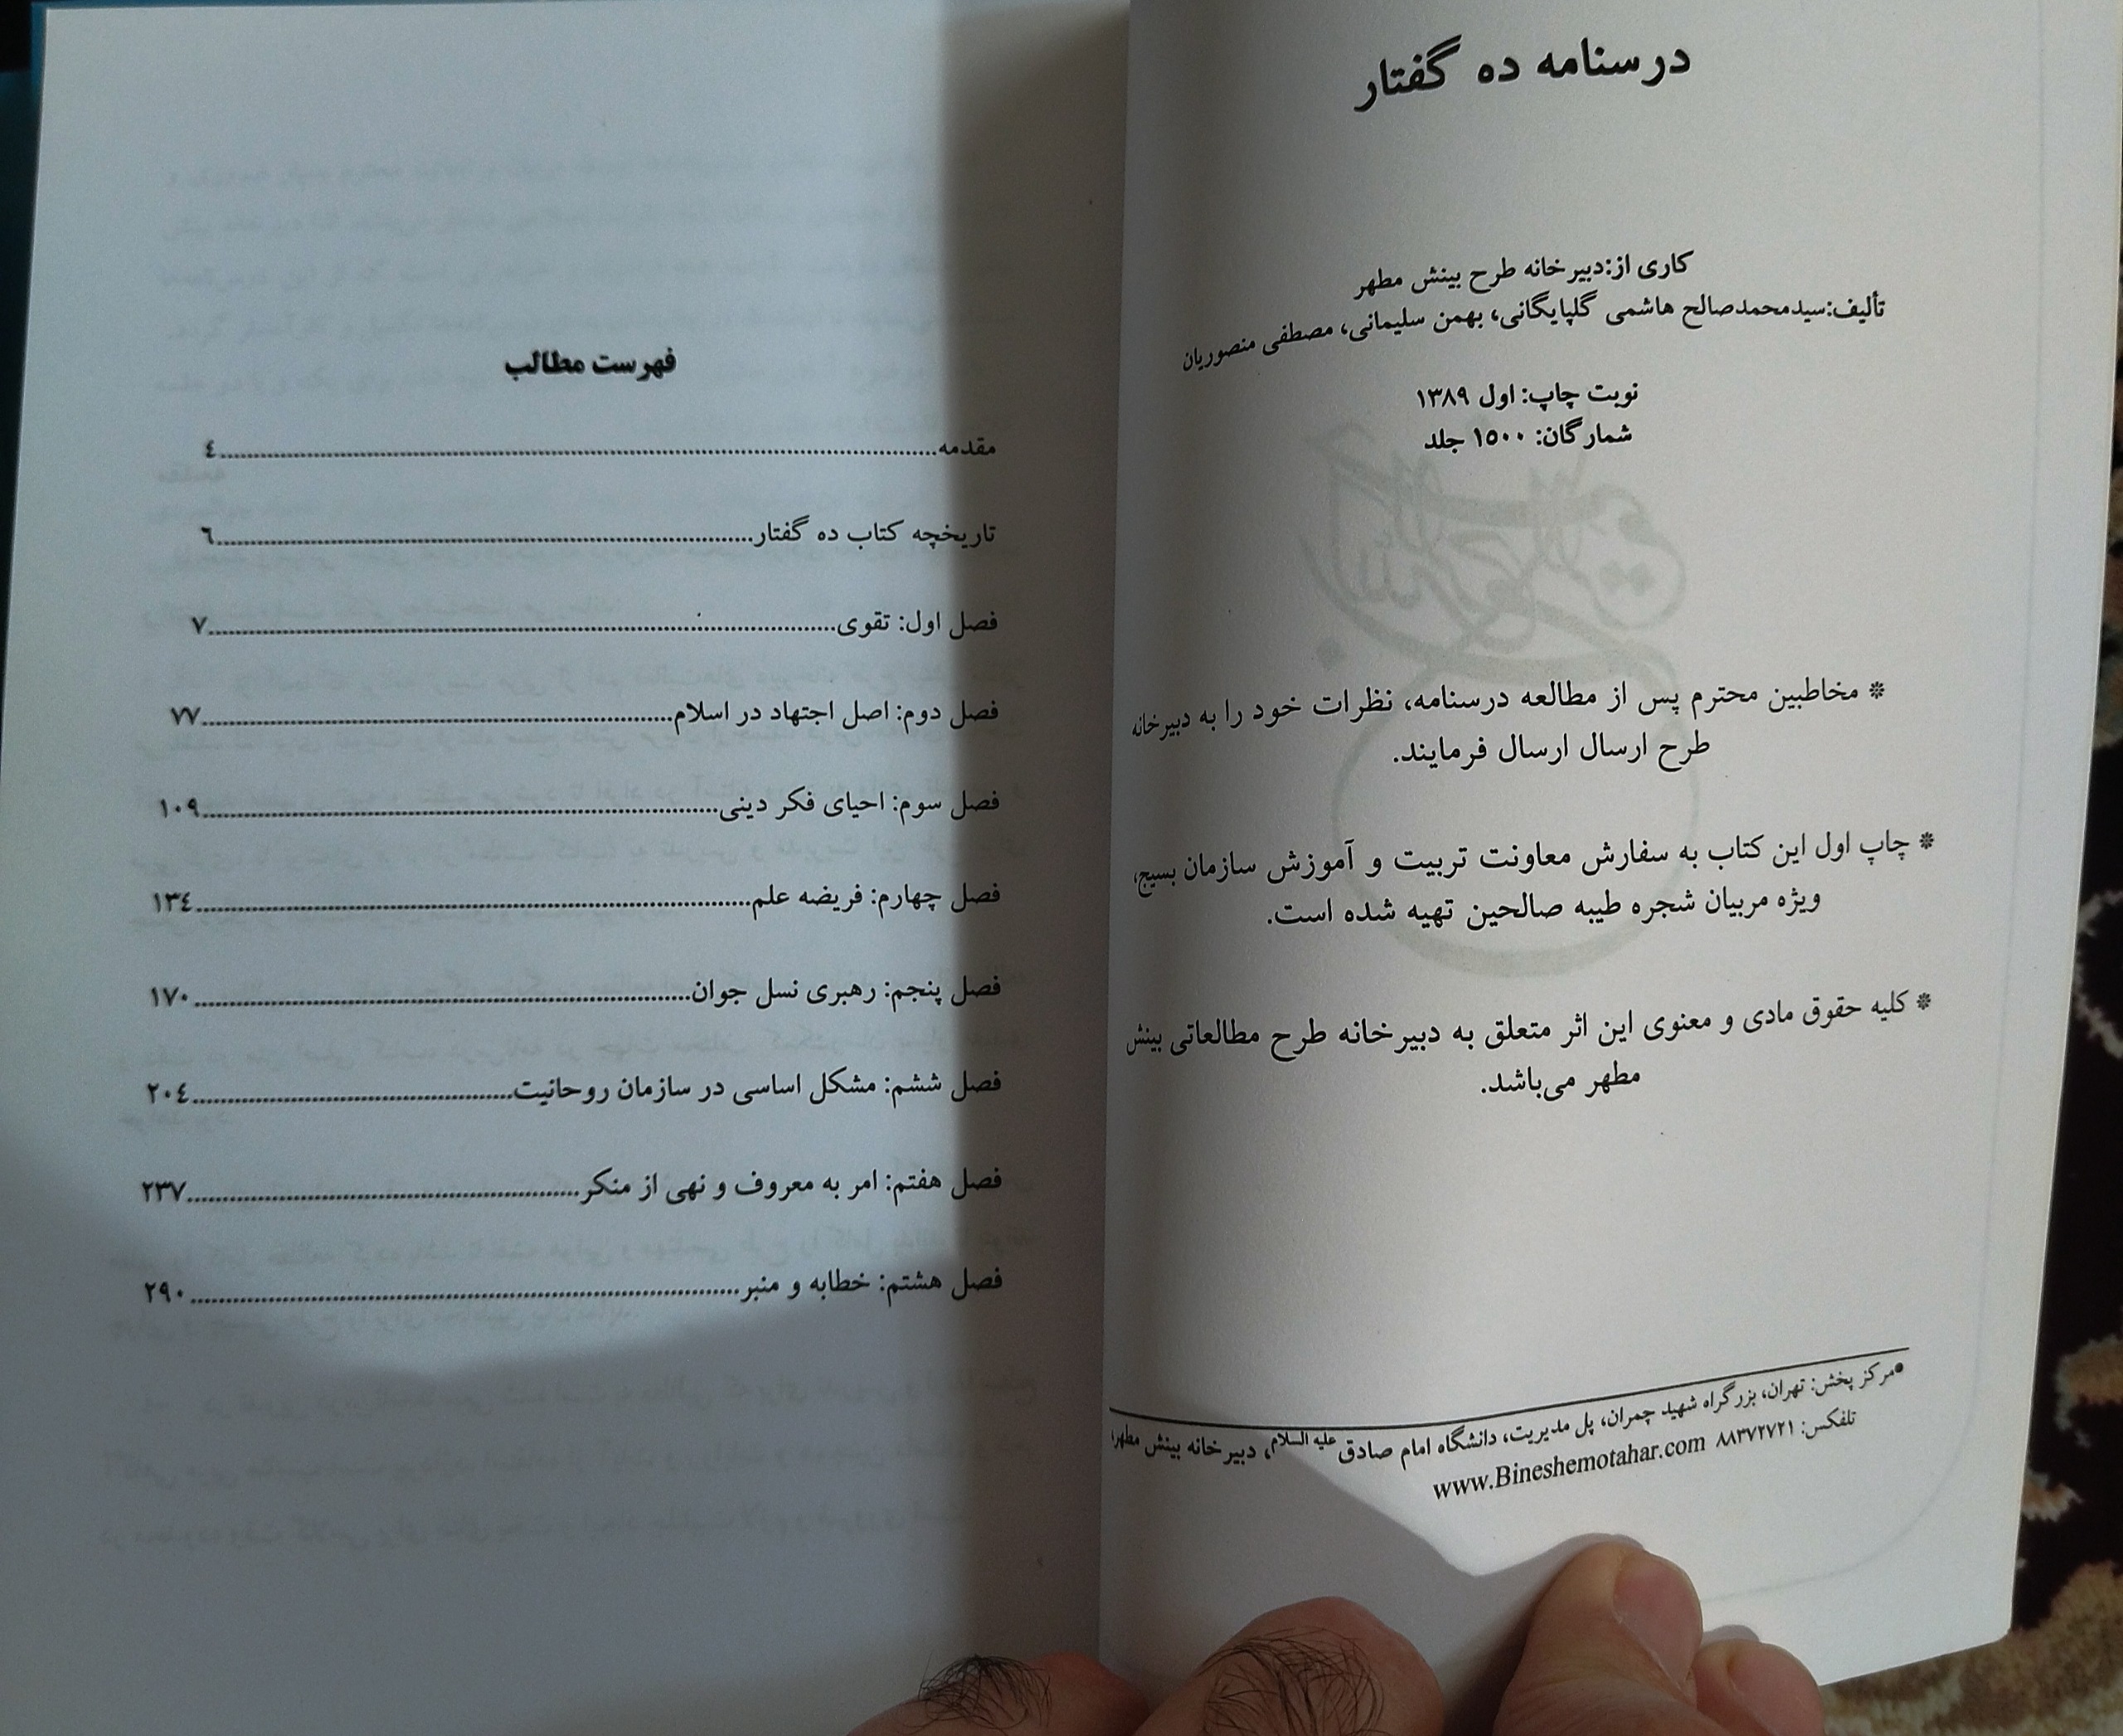 درسنامه ده گفتار
کاری از:دبیرخانه طرح بینش مطهر
تألیف:سیدمحمدصالح هاشمی گلپایگانی، بهمن سلیمانی، مصطفی منصوریان
نوبت چاپ: اول ۱۳۸۹
شمارگان: ۱۵۰۰ جلد
* مخاطبین محترم پس از مطالعه درسنامه، نظرات خود را به دبیرخانه
طرح ارسال ارسال فرمایند.
* چاپ اول این کتاب به سفارش معاونت تربیت و آموزش سازمان بسیج،
ویژه مربیان شجره طیبه صالحین تهیه شده است.
* کلیه حقوق مادی و معنوی این اثر متعلق به دبیرخانه طرح مطالعاتی بینش
مطهر می‌باشد.
•مرکز پخش: تهران، بزرگراه شهید چمران، پل مدیریت، دانشگاه امام صادق علیه السلام، دبیرخانه بینش مطهر
تلفکس: ۸۸۳۷۲۷۲۱ www.Bineshemotahar.com
فهرست مطالب
مقدمه..........٤
تاریخچه کتاب ده گفتار..........٦
فصل اول: تقوی..........۷
فصل دوم: اصل اجتهاد در اسلام..........۷۷
فصل سوم: احیای فکر دینی..........۱۰۹
فصل چهارم: فریضه علم..........۱۳٤
فصل پنجم: رهبری نسل جوان..........۱۷۰
فصل ششم: مشکل اساسی در سازمان روحانیت..........۲۰٤
فصل هفتم: امر به معروف و نهی از منکر..........۲۳۷
فصل هشتم: خطابه و منبر..........۲۹۰